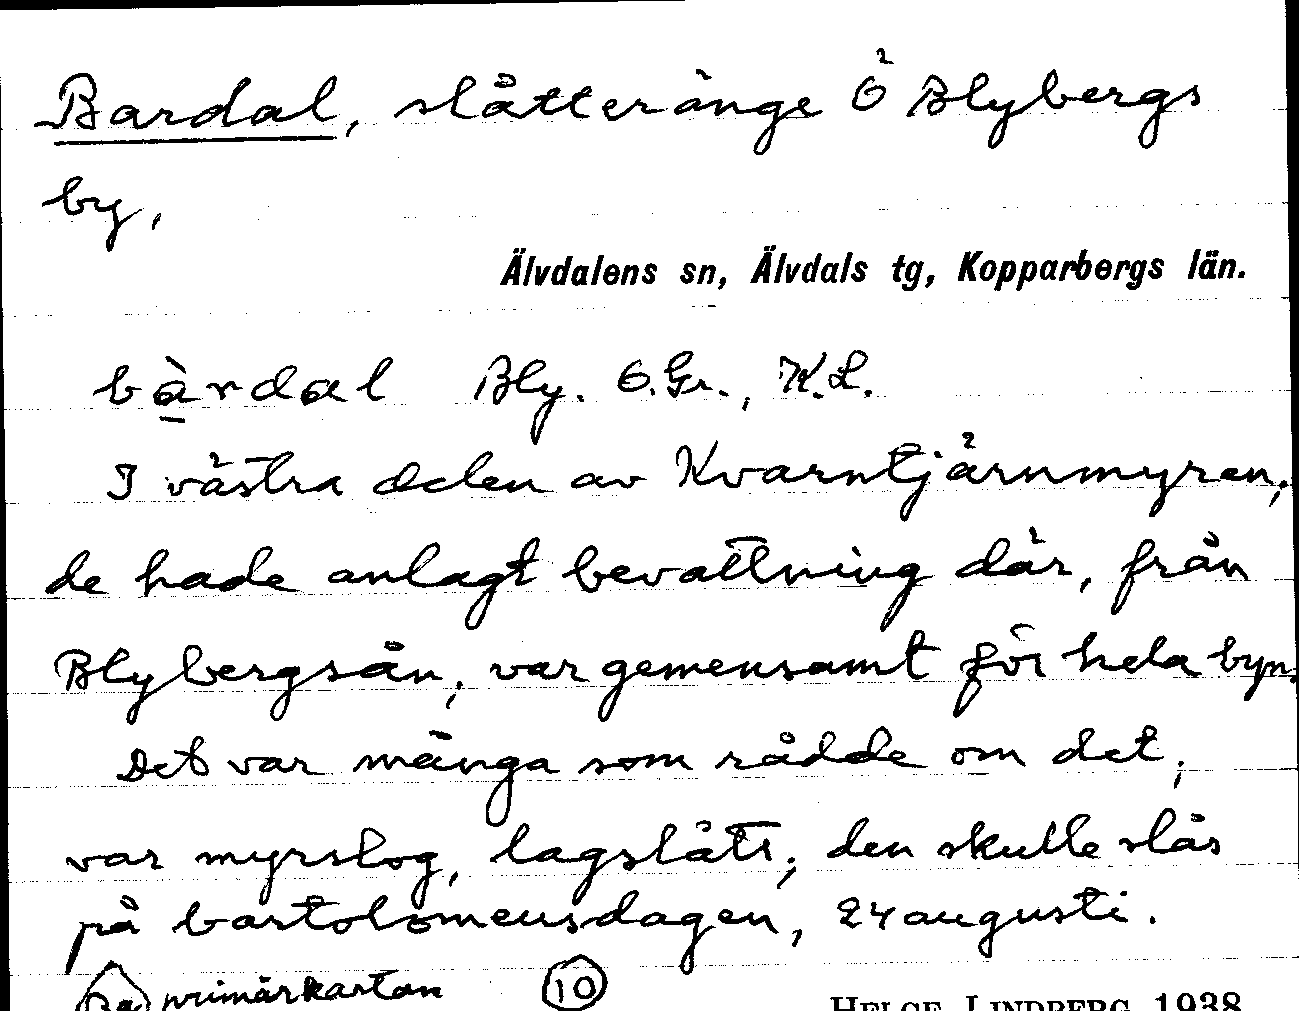 Bardal, slåtteränge Ö Blybergs
by,
Älvdalens sn, Älvdals tg, Kopparbergs län.
bàrdal Bly. O.Gr., K.L.
I västra delen av Kvarntjärnmyren,
de hade anlagt bevattning där, från
Blybergsån, var gemensamt för hela byn.
Det var många som rådde om det,
var myrslog, lagslått; den skulle slås
på bartolomeusdagen, 24 augusti.
Ba primärkartan 10
HELGE LINDBERG 1938